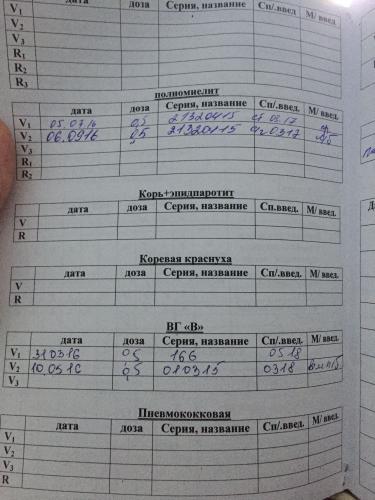 дата доза Серия, название Сп/.введ. М/ введ.
V₁
V₂
V₃
R₁
R₂
R₃
полиомиелит
дата доза Серия, название Сп/.введ. М/ введ.
V₁ 05.07.16 0,5 21320415 03.17
V₂ 06.0916 0,5 21320115 0317 п/б
V₃
R₁
R₂
Корь+эпидпаротит
дата доза Серия, название Сп.введ. М/ введ.
V
R
Коревая краснуха
дата доза Серия, название Сп/.введ. М/ введ.
V
R
ВГ «В»
дата доза Серия, название Сп/.введ. М/ введ.
V₁ 310316 0,5 166 0518
V₂ 10.0516 0,5 010315 0318 в м п/б
V₃
Пневмококковая
дата доза Серия, название Сп/.введ. М/ введ.
V₁
V₂
V₃
R